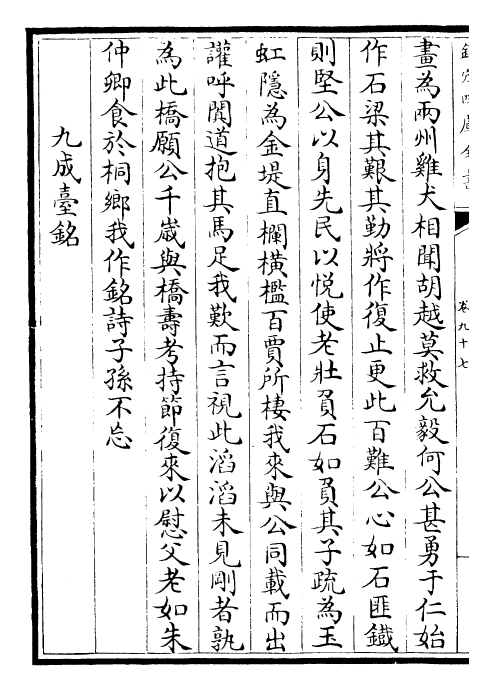 欽定四庫全書
卷九十七
畫為兩州雞犬相聞胡越莫救允毅何公甚勇于仁始
作石梁其艱其勤將作復止更此百難公心如石匪鐵
則堅公以身先民以悅使老壯負石如負其子疏為玉
虹隱為金堤直欄橫檻百賈所棲我來與公同載而出
讙呼闐道抱其馬足我歎而言視此滔滔未見剛者孰
為此橋願公千嵗與橋壽考持節復來以慰父老如朱
仲卿食於桐鄉我作銘詩子孫不忘
九成臺銘